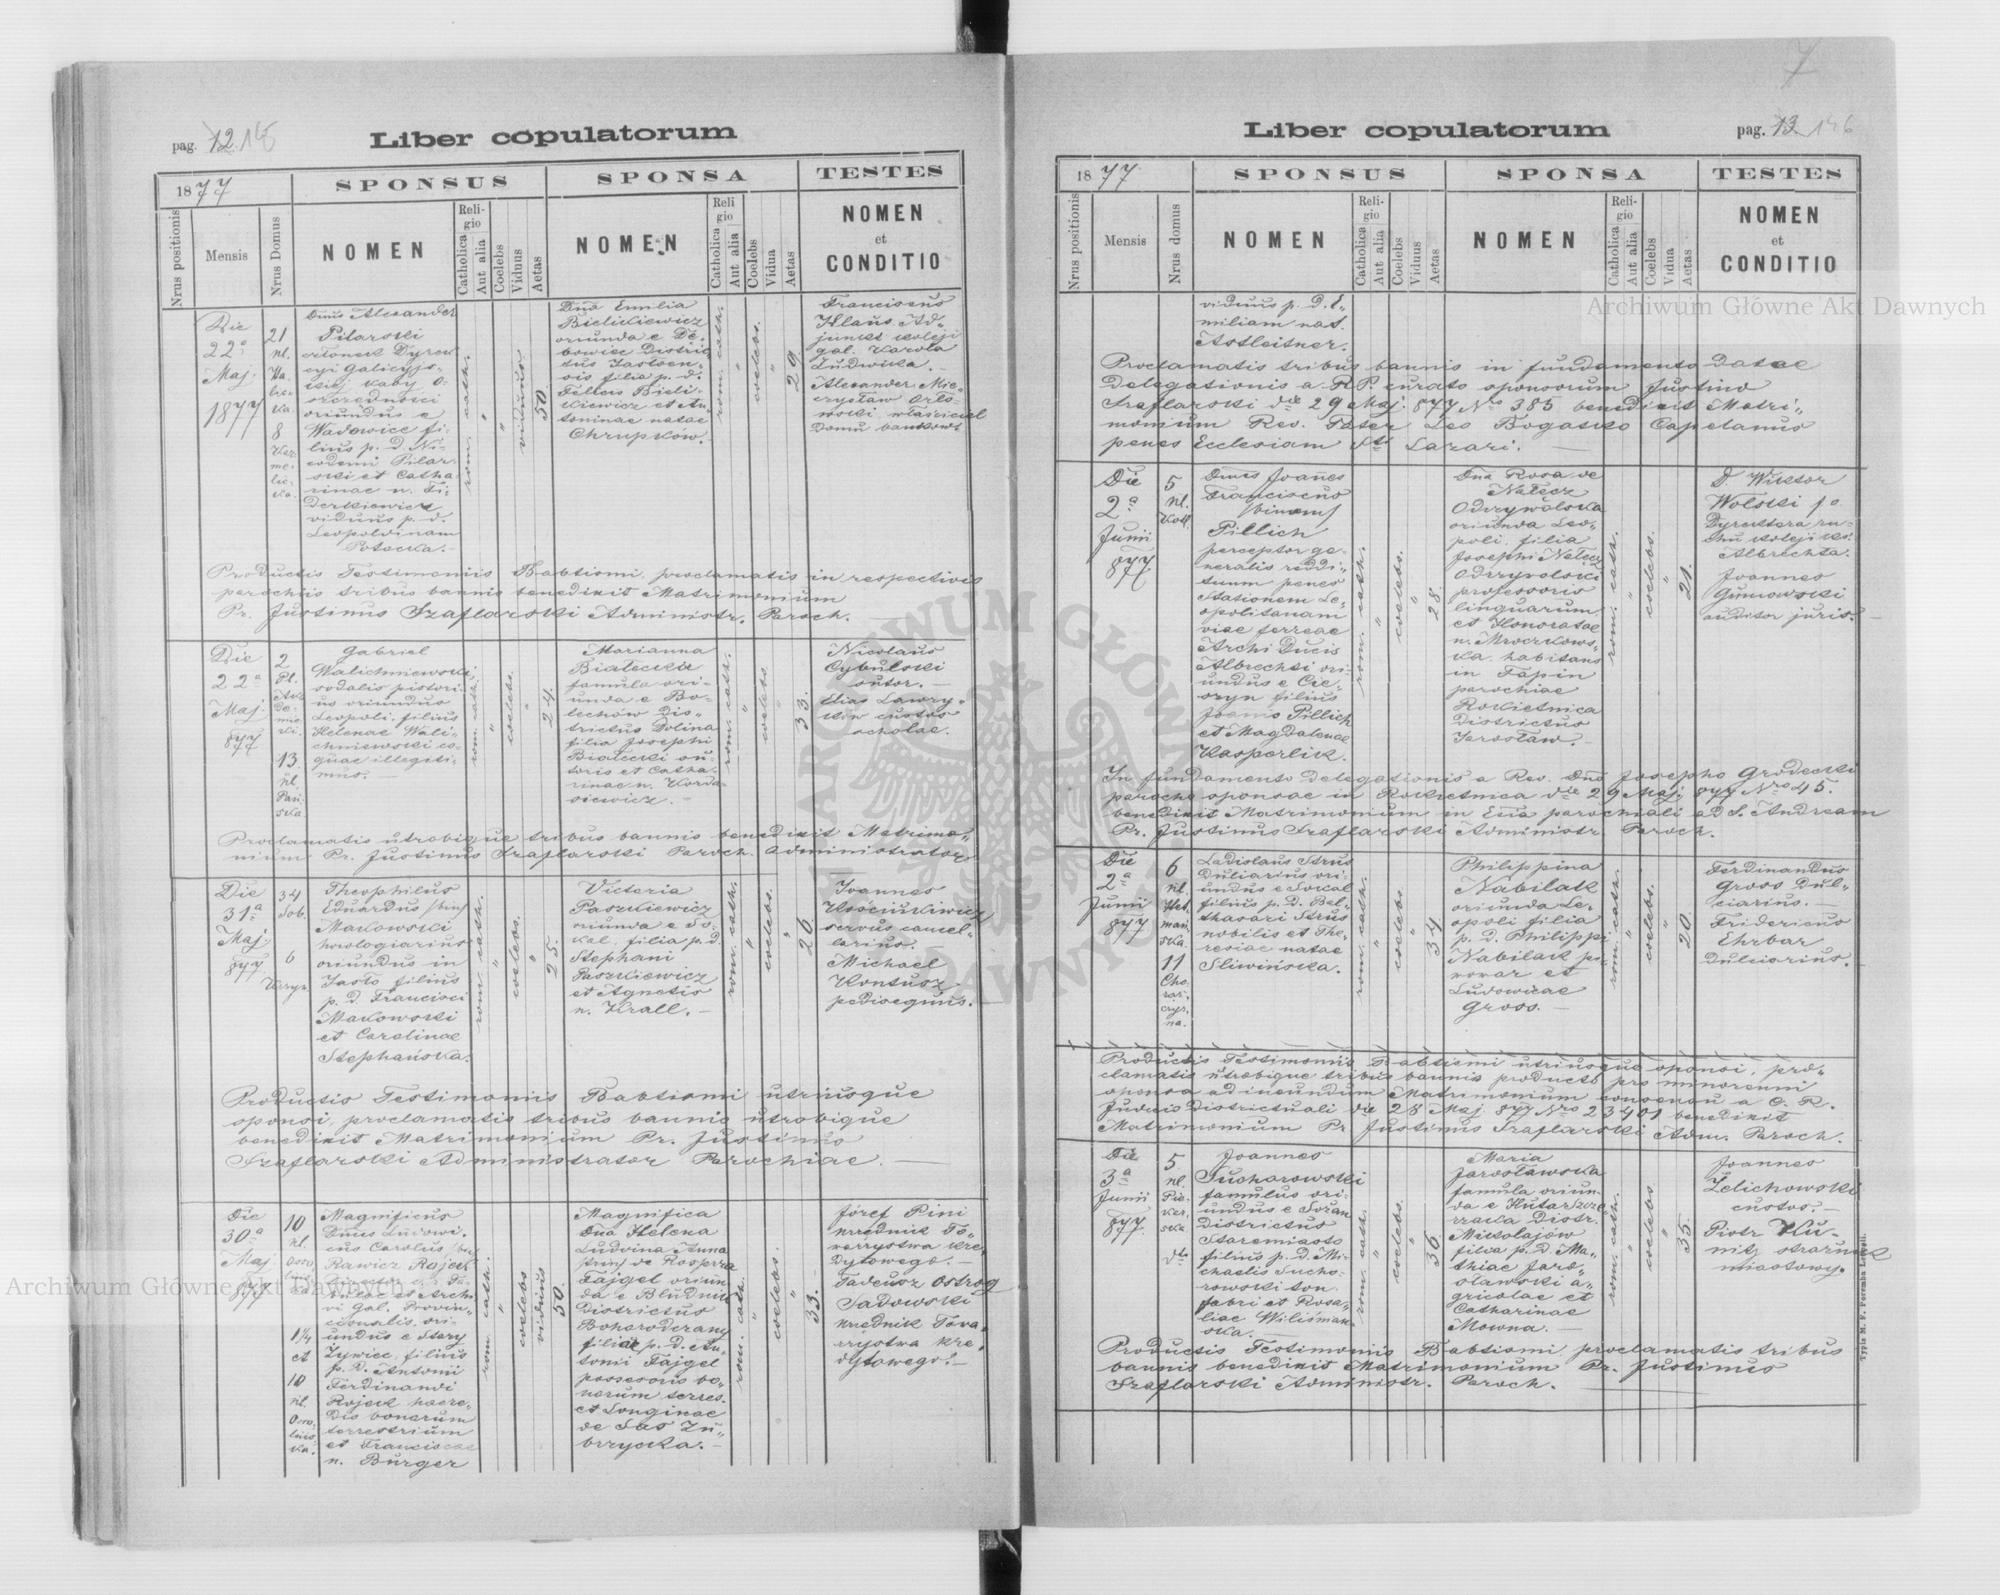 pag. 12.
Liber copulatorum
1877
SPONSUS
SPONSA
TESTES
Nrus positionis
Mensis
Nrus Domus
NOMEN
Religio
Catholica
Aut alia
Coelebs
Viduus
Aetas
NOMEN
Religio
Catholica
Aut alia
Coelebs
Vidua
Aetas
NOMEN
et
CONDITIO
Die
22a
Maj.
1877
21
8
Dnus Alexander
Pilarski
członek Dyrek
cyi galicyjs-
kiej kasy o-
szczędności
oriundus e
Wadowice fi-
lius p. d. Ni-
codemi Pilar-
ski et Catha-
rinae n. Fi-
derkiewicz
viduus p. d.
Leopoldinam
Potocka.
rom. cath.
viduus
50.
Dna Emilia
Bielikiewicz
oriunda e Dę-
bowiec Distric
tus Jasloen-
sis filia p. d.
Felicis Bieli-
kiewicz et An-
toninae natae
Chrupków.
rom. cath.
coelebs.
29.
Franciscus
Klaus Ad-
junkt koleji
gal. Karola
Ludwika.
Alexander Mie-
czysław Orło-
wski właściciel
Domu bankow.
Productis Testimoniis Babtismi, proclamatis in respectivis
parochiis tribus bannis benedixit Matrimonium
Pr. Justinus Szaflarski Administr. Paroch.
Die
22a
Maj.
877
2
Pl.
13.
nl.
Pań-
ska
Gabriel
Walichniewski
sodalis pistori-
us oriundus
Leopoli, filius
Helenae Wali-
chniewski co-
quae illegiti-
mus.
rom. cath.
coelebs.
24.
Marianna
Białecka
famula ori-
unda e Bo-
lechów Dis-
trictus Dolina
filia Josephi
Białecki su-
toris et Catha-
rinae n. Korda-
siewicz.
rom. cath.
coelebs.
33.
Nicolaus
Cybulski
sutor.
Elias Lawry-
ków custos
scholae.
Proclamatis utrobique tribus bannis benedixit Matrimo-
nium Pr. Justinus Szaflarski Paroch. Administrator
Die
31a
Maj.
877
34
Sob.
6
Theophilus
Eduardus /bin/
Makowski
horologiarius
oriundus in
Jasło filius
p. d. Francisci
Makowski
et Carolinae
Stephańska.
rom. cath.
coelebs.
25.
Victoria
Paszkiewicz
oriunda e So-
kal, filia p. d.
Stephani
Paszkiewicz
et Agnetis
n. Krall.
rom. cath.
coelebs.
26.
Joannes
Kościukiewicz
servus cancel-
larius.
Michael
Kontusz
pedisequus.
Productis Testimoniis Babtismi utriusque
sponsi, proclamatis tribus bannis utrobique
benedixit Matrimonium Pr. Justinus
Szaflarski Administrator Parochiae.
Die
30a
Maj
877
10
nl.
1/4
et
10
nl.
Magnificus
Dnus Ludovi-
cus Carolus /bin/
Rawicz Rojeck
vi Gal. Provin-
cionalis, ori-
undus e Stary
Żywiec, filius
p. d. Antonii
Ferdinandi
Rojeck haere-
dis bonorum
terrestrium
et Franciscae
n. Bürger
rom. cath.
coelebs
viduus
50.
Magnifica
Dna Helena
Ludvina Anna
/trin/ de Rosprza
Fajgel oriun-
da e Bludnik
Districtus
Bohorodczany
filiae p. d. An-
tonii Fajgel
possesoris bo-
norum terres.
et Longinae
de Sas Zu-
brzycka.
rom. cath.
coelebs.
33.
Józef Pini
urzędnik To-
warzystwa kre-
dytowego.
Tadeusz Ostrog
Sadowski
urzednik Towa-
rzystwa kre-
dytowego.
pag. 13.
Liber copulatorum
1877
SPONSUS
SPONSA
TESTES
Nrus positionis
Mensis
Nrus domus
NOMEN
Religio
Catholica
Aut alia
Coelebs
Viduus
Aetas
NOMEN
Religio
Catholica
Aut alia
Coelebs
Vidua
Aetas
NOMEN
et
CONDITIO
viduus p. d. E-
miliam nat.
Astleitner.
Proclamatis tribus bannis in fundamento datae
delegationis a RP curato sponsorum Justino
Szaflarski die 29 Maj. 877 Nro 385 benedixit Matri-
monium Rev. Pater Leo Bogatko Capelanus
penes Ecclesiam Sti Lazari.
Die
2a
Junii
877
5
nl.
Dnus Joannes
Franciscus
/binom/
Pillich
perceptor ge-
neralis reddi-
tuum penes
Stationem Le-
opolitanam
viae ferreae
Archi Ducis
Albrechti ori-
undus e Cie-
szyn filius
Joanis Pillich
et Magdalenae
Kasperlik.
rom. cath.
coelebs.
28.
Dna Rosa de
Nałecz
Odrzywolska
oriunda Leo-
poli, filia
Josephi Nałecz
Odrzywolski
professoris
linguarum
et Honoratae
n. Mroczkows-
ka habitans
in Tapin
parochiae
Rokietnica
Districtus
Jaroslaw.
rom. cath.
coelebs.
21.
D Wiktor
Wolski p o
Dyrektora ru-
chu kolei ks.
Albrechta.
Joannes
Gumowski
auditor juris.
In fundamento delegationis a Rev. Dno Josepho Grodecki
parocho sponsae in Rokietnica die 29 Maj. 877 Nro 45.
benedixit Matrimonium in Ecclia parochiali ad S. Andream
Pr. Justinus Szaflarski Administr. Paroch.
Die
2a
Junii
877
6
nl.
Het-
mań-
ska.
11
Cho-
rąż-
czyz-
na.
Ladislaus Strus
Dulciarius ori-
undus e Sokal
filius p. d. Bal-
thasari Strus
nobilis et The-
resiae natae
Sliwińska.
rom. cath.
coelebs.
34.
Philippina
Nabilak
oriunda Le-
opoli filia
p. d. Philippi
Nabilak pi-
vovar et
Ludovicae
Gross.
rom. cath.
coelebs.
20.
Ferdinandus
Gross Dul-
ciarius.
Fridericus
Ehrbar
Dulciarius.
Productis Testimoniis Babtismi utriusque sponsi, pro-
clamatis utrobique tribus bannis producto pro minorenni
sponsa ad ineundum Matrimonium consensu a C. R.
Judicio Districtuali die 28 Maj 877 Nro 23401 benedixit
Matrimonium Pr Justinus Szaflarski Adm. Paroch.
Die
3a
Junii
877
5
nl.
Pie-
kar-
ska
Joannes
Sucharowski
famulus ori-
undus e Sozań
Districtus
Staremiasto
filius p. d. Mi-
chaelis Sucho-
rowski ton.
fabri et Rosa-
liae Wiliśman-
ska.
rom. cath.
coelebs.
36.
Maria
Jarosławska
famula oriun-
da e Hutar Szcze-
rzecka Distr.
Mikołajów
filia p. d. Ma-
thiae Jaro-
sławski a-
gricolae et
Catharinae
Mowna.
rom. cath.
coelebs
35.
Joannes
Zelichowski
custos.
Piotr Ku-
nitz strażnik
miastowy.
Productis Testimoniis Babtismi, proclamatis tribus
bannis benedixit Matrimonium Pr. Justinus
Szaflarski Administr. Paroch.
Typis M. F. Poremba Leopoli.
Archiwum Główne Akt Dawnych
Archiwum Główne Akt Dawnych
ARCHIWUM GŁÓWNE AKT DAWNYCH